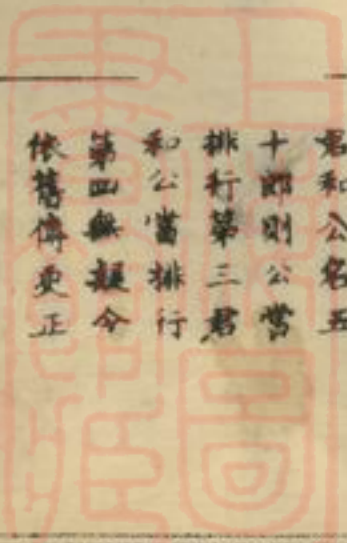 君和公名五
十郎則公當
排行第三君
和公當排行
第四無疑今
依舊傳更正